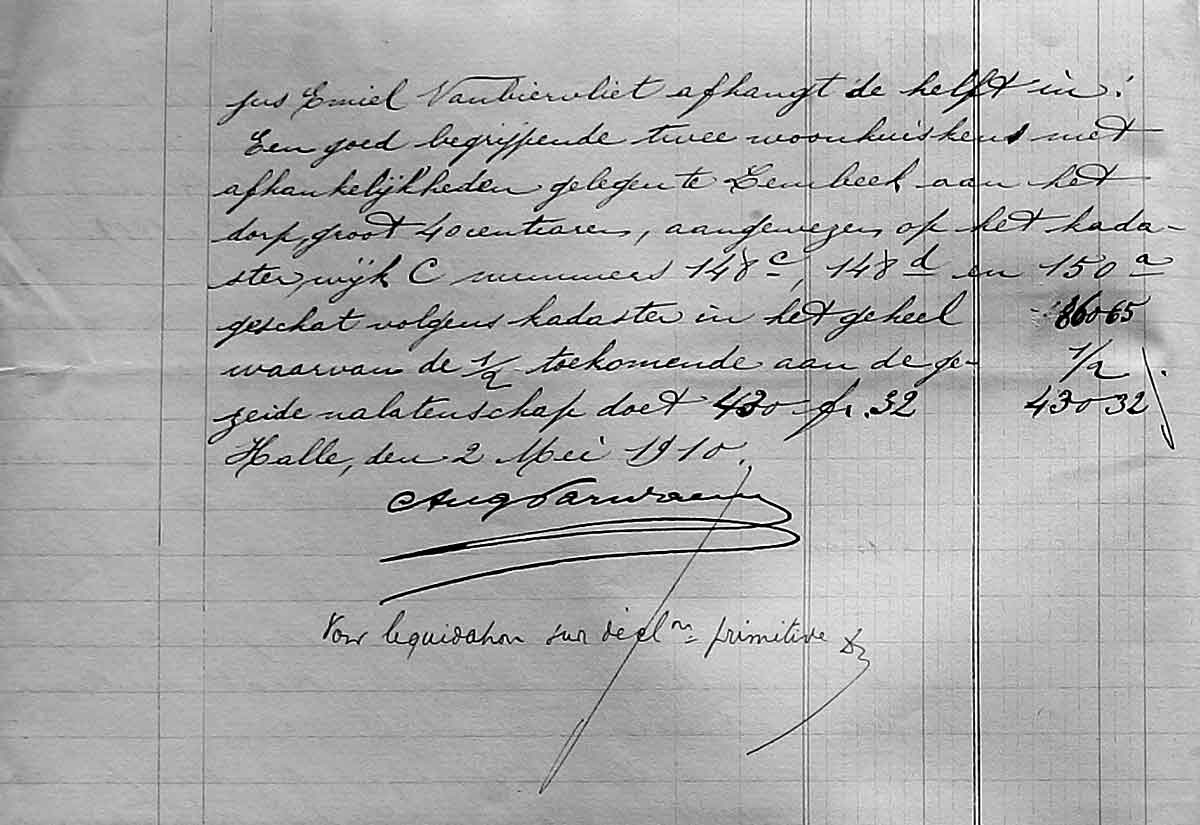 jus Emiel Vanbiervliet afhangt de helft in:
Een goed begrijpende twee woonhuiskens met
afhankelijkheden gelegen te Lembeek aan het
dorp, groot 40 centiaren, aangewezen op het kada-
ster, wijk C nummers 148 c, 148 d en 150 a
geschat volgens kadaster in het geheel 860 65
waarvan de 1/2 toekomende aan de ge- 1/2
zeide nalatenschap doet 430 fr. 32 430 32
Halle, den 2 Mei 1910.
Voir liquidation sur décl on primitive